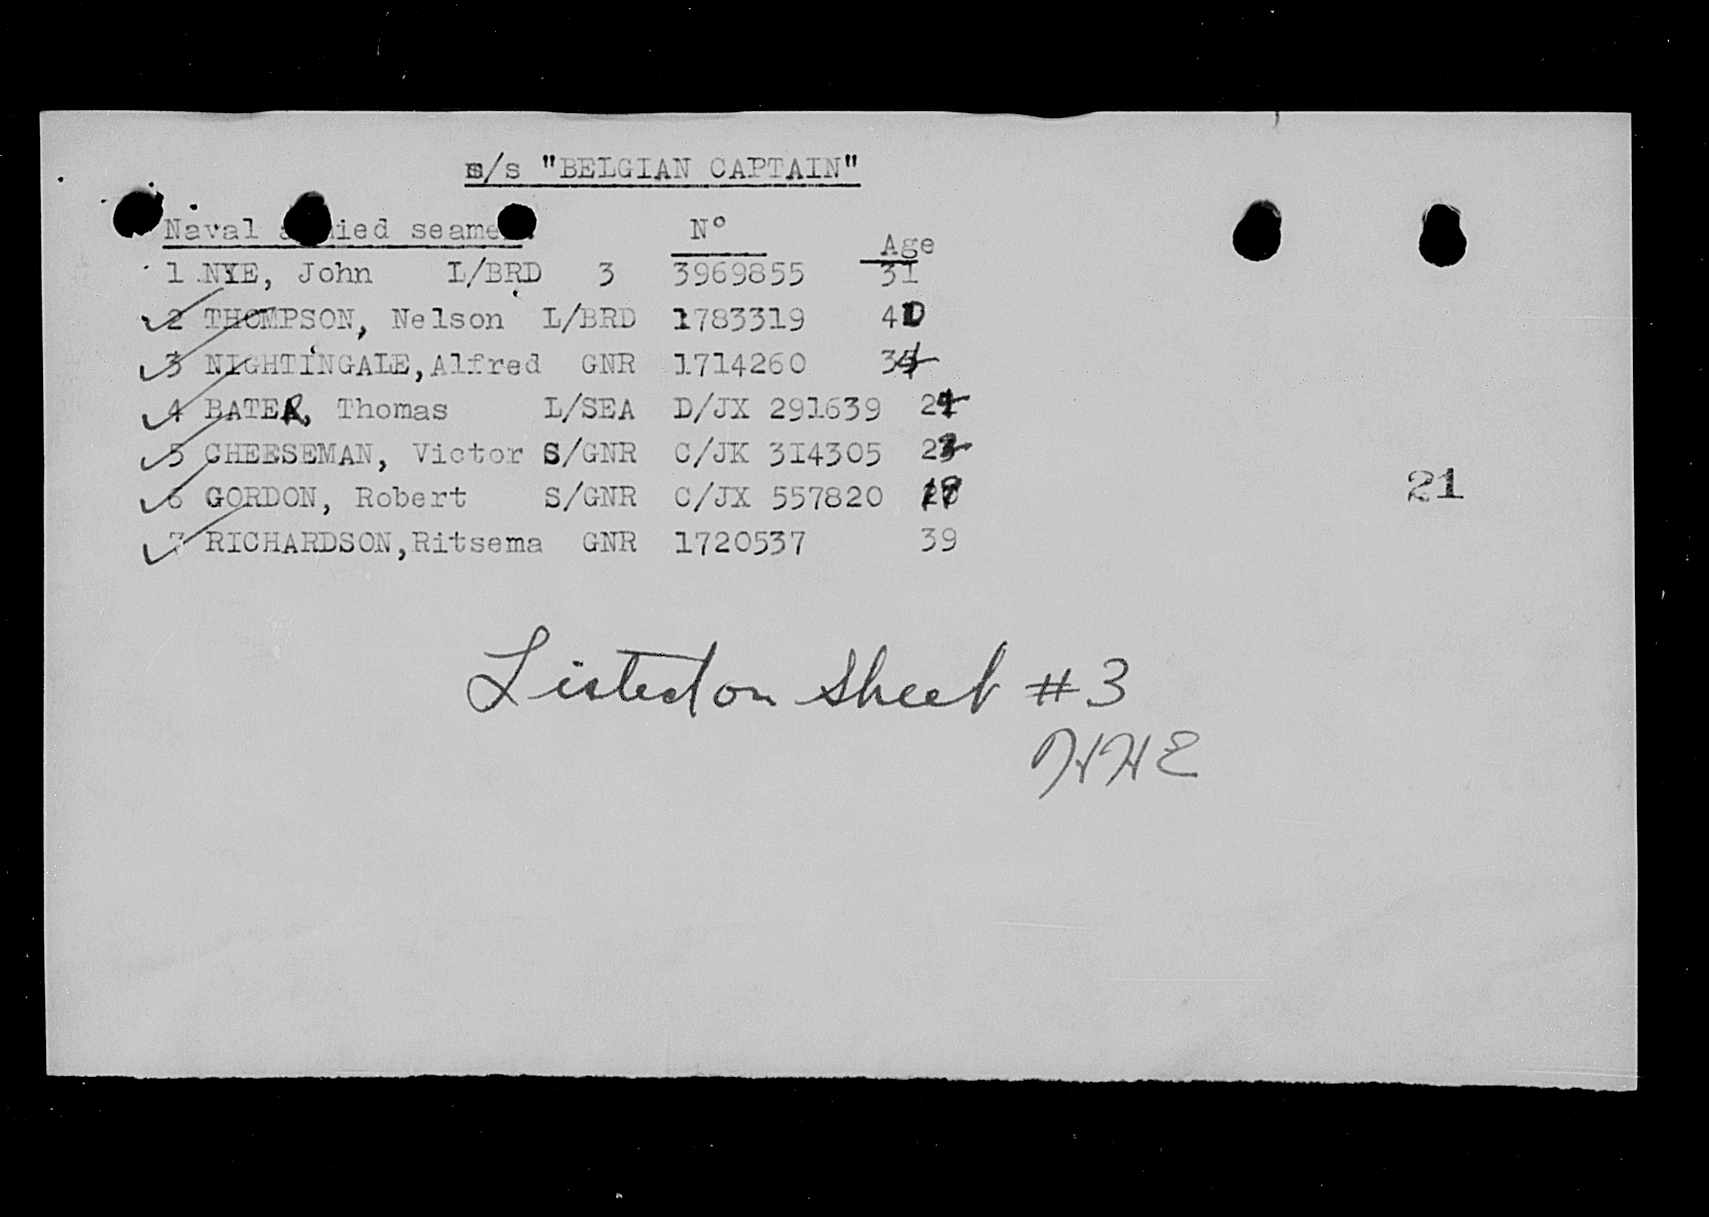 s/s "BELGIAN CAPTAIN"
Naval seamen. N° Age
1 NYE, John L/BRD 3 3969855 31
2 THOMPSON, Nelson L/BRD 1783319 40
3 NIGHTINGALE, Alfred GNR 1714260 34
4 BATER, Thomas L/SEA D/JX 291639 24
5 CHEESEMAN, Victor S/GNR C/JK 314305 23
6 GORDON, Robert S/GNR C/JX 557820
7 RICHARDSON, Ritsema GNR 1720537 39
21
Listed on Sheet #3
HHE